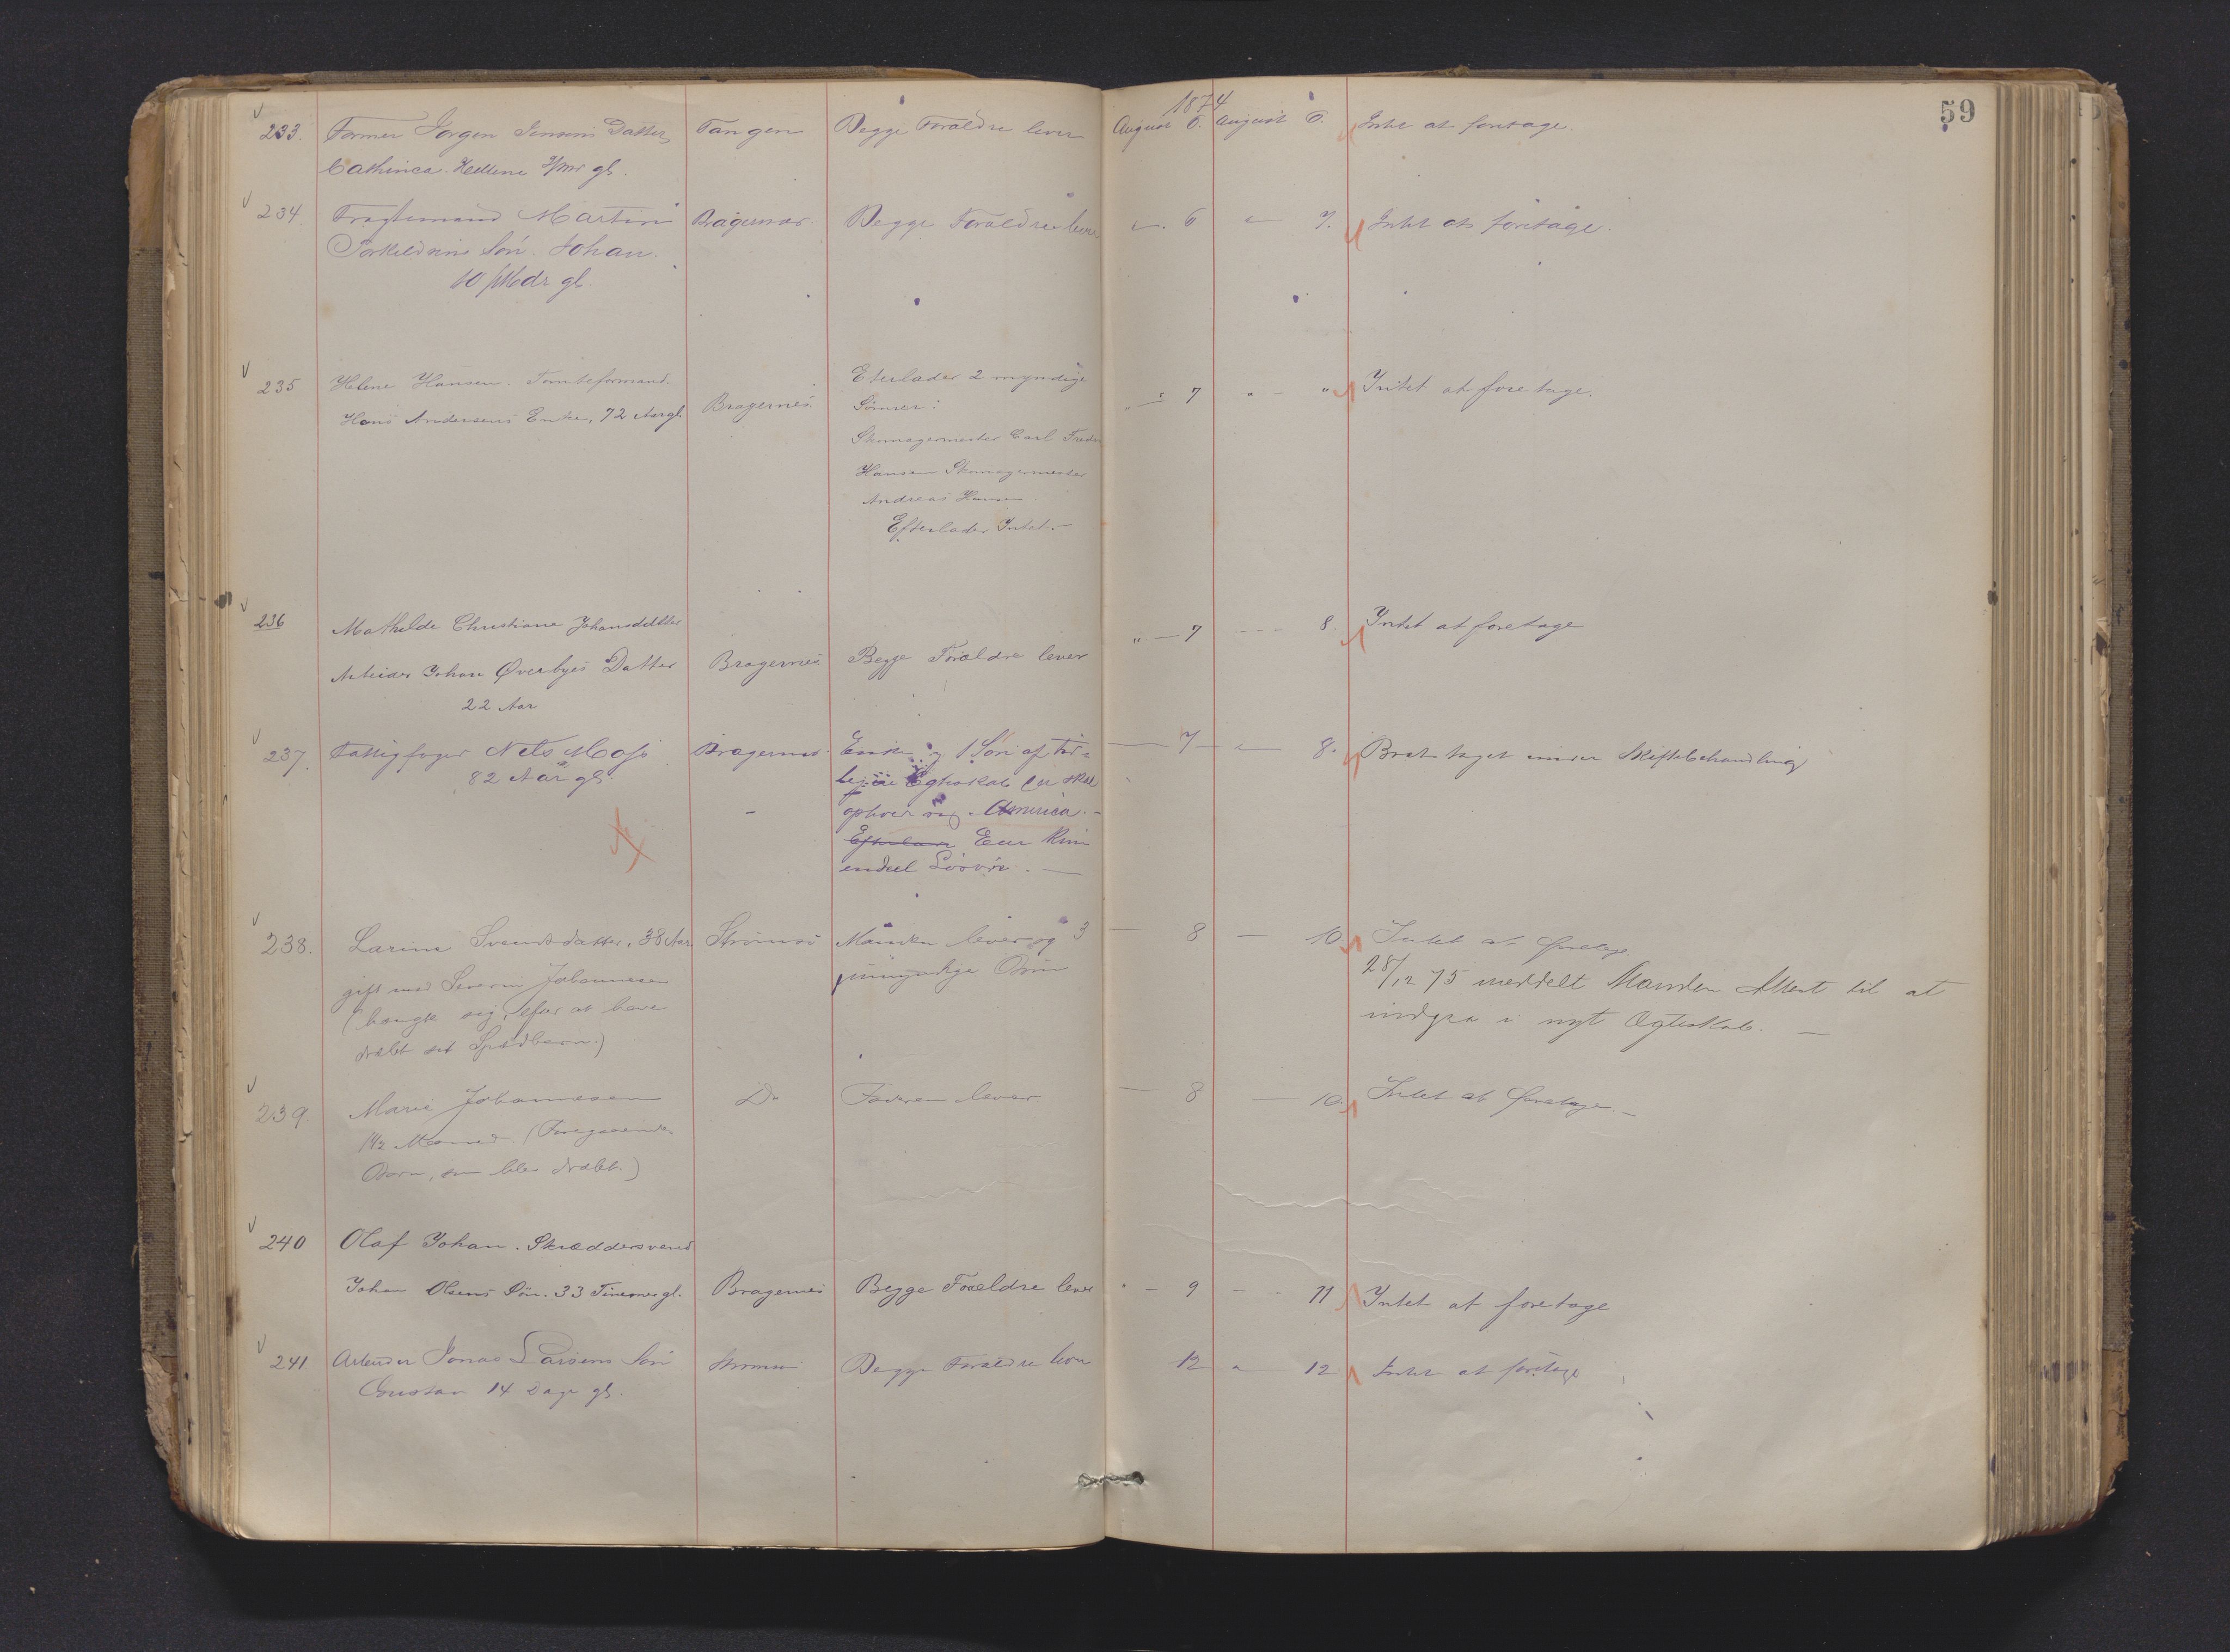 59
1874
233. Former Jørgen Jensens Datter Tangen Begge Forældre lever August 6. August 6. Intet at foretage.
Cathinca Hellene gl.
234. Fragtemand Martin Bragernæs. Begge Forældre lever " 6 " 7. Intet at foretage.
Torkildsens Søn. Johan.
10 Mdr gl.
235 Helene Hansen. Tomteformand. Efterlader 2 myndige " 7 " " Intet at foretage.
Hans Andersens Enke, 72 Aar gl. Bragernes. Sønner:
Skomagermester Carl Fredr
Hansen Skomagermester
Andreas Hansen.
Efterlader Intet.
236 Mathilde Christiane Johansdatter " 7 8. Intet at foretage
Arbeider Johan Øverbyes Datter Bragernes. Begge Forældre lever
22 Aar
237. Fattigfoged Nels Moss Bragernæs. Enke og 1 Søn af tid- — 7 — 8. Boet taget under Skiftebehandling
82 Aar gl. Egteskab skal
opholde sig i America.
Efterlader Eier kun
endeel Løsøre. —
238. Larine Svendsdatter, 38 Aar Strømsø Manden lever og 3 — 8 — 10. Intet at foretage
gift med Severin Johannesen umyndige Børn 28/12 75 meddelt Manden Attest til at
(hængte sig, efter at have indgaa i nyt Ægteskab. —
dræbt sit Spædbarn.)
239. Marie Johannesen Do Faderen lever. — 8 — 10. Intet at foretage. —
1 1/2 Maaned (Foregaaendes
Barn, som blev dræbt.)
240 Olaf Johan. Skræddersvend
Johan Olsens Søn. 33 Timer gl. Bragernes Begge Forældre lever " 9 11 Intet at foretage
241 Arbeider Jonas Larsens Søn Strømsø Begge Forældre lever 12 " 12 Intet at foretage
Gustav 14 Dage gl.